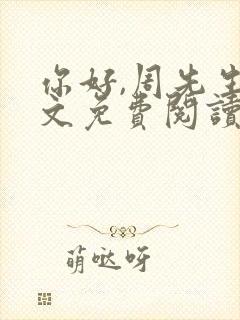 你好,周先生
文免費閱讀
萌哒呀